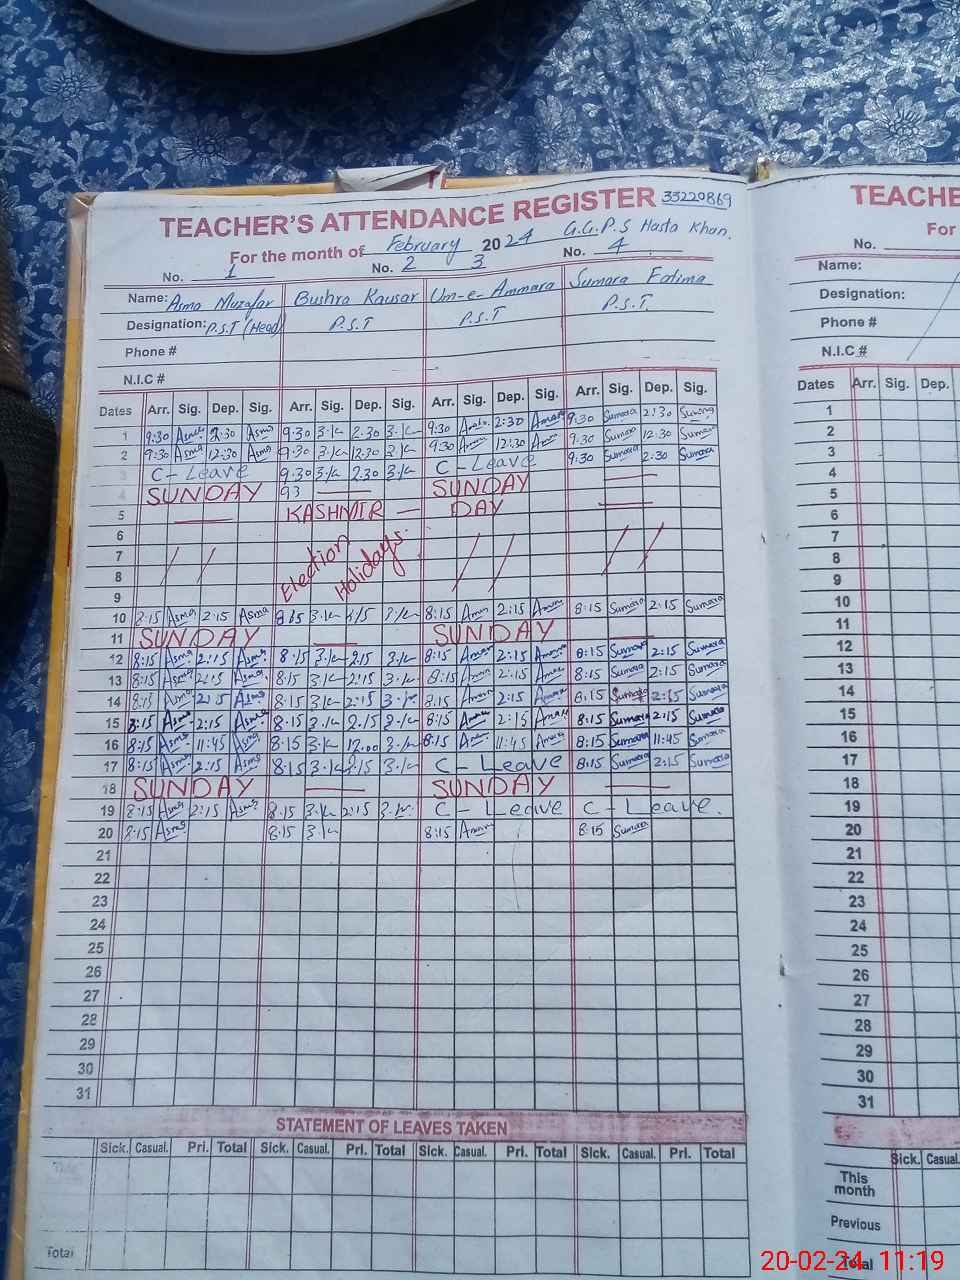 TEACHER'S ATTENDANCE REGISTER 33220869 TEACHE
For the month of February 2024 G.G.P.S Hasta Khan. For
No. 1 No. 2 3 No. 4 No.
Name: Asma Muzafar Bushra Kausar Um-e-Ammara Sumara Fatima Name:
Designation: P.S.T (Head) P.S.T P.S.T P.S.T. Designation:
Phone # Phone #
N.I.C # N.I.C #
Dates Arr. Sig. Dep. Sig. Arr. Sig. Dep. Sig. Arr. Sig. Dep. Sig. Arr. Sig. Dep. Sig. Dates Arr. Sig. Dep.
1 9:30 Asma 2:30 Asma 9.30 3.K 2.30 3.K 9:30 2:30 9:30 Sumara 2:30 Sumara 1
2 9:30 Asma 12:30 Asma 9.30 3.K 12.30 3.K 9:30 12:30 9:30 Sumara 12:30 Sumara 2
3 C-Leave 9.30 3.K 2.30 3.K C-Leave 9:30 Sumara 2:30 Sumara 3
4 SUNDAY 93 SUNDAY 4
5 KASHMIR — DAY 5
6 6
7 Election Holidays. 7
8 8
9 9
10 8:15 Asma 2:15 Asma 8.15 3.K 2.15 3.K 8:15 Amm 2:15 Amm 8:15 Sumara 2:15 Sumara 10
11 SUNDAY SUNDAY 11
12 8:15 Asma 2:15 Asma 8.15 3.K 2.15 3.K 8:15 2:15 8:15 Sumara 2:15 Sumara 12
13 8:15 Asma 2:15 Asma 8.15 3.K 2.15 3.K 8:15 2:15 8:15 Sumara 2:15 Sumara 13
14 8:15 Asma 2:15 Asma 8.15 3.K 2.15 3.K 8:15 2:15 8:15 Sumara 2:15 Sumara 14
15 8:15 Asma 2:15 Asma 8.15 3.K 2.15 3.K 8:15 2:15 8:15 Sumara 2:15 Sumara 15
16 8:15 Asma 11:45 Asma 8.15 3.K 12.00 3.K 8:15 11:45 8:15 Sumara 11:45 Sumara 16
17 8:15 Asma 2:15 Asma 8.15 3.K 2.15 3.K C-Leave 8:15 Sumara 2:15 Sumara 17
18 SUNDAY SUNDAY 18
19 8:15 Asma 2:15 Asma 8.15 3.K 2:15 3.K C-Leave C-Leave. 19
20 8:15 Asma 8.15 3.K 8:15 Amm 8:15 Sumara 20
21 21
22 22
23 23
24 24
25 25
26 26
27 27
28 28
29 29
30 30
31 31
STATEMENT OF LEAVES TAKEN
Sick. Casual. Pri. Total Sick. Casual. Pri. Total Sick. Casual. Pri. Total Sick. Casual. Pri. Total Sick. Casual.
This month
Previous
Total Total
20-02-24 11:19